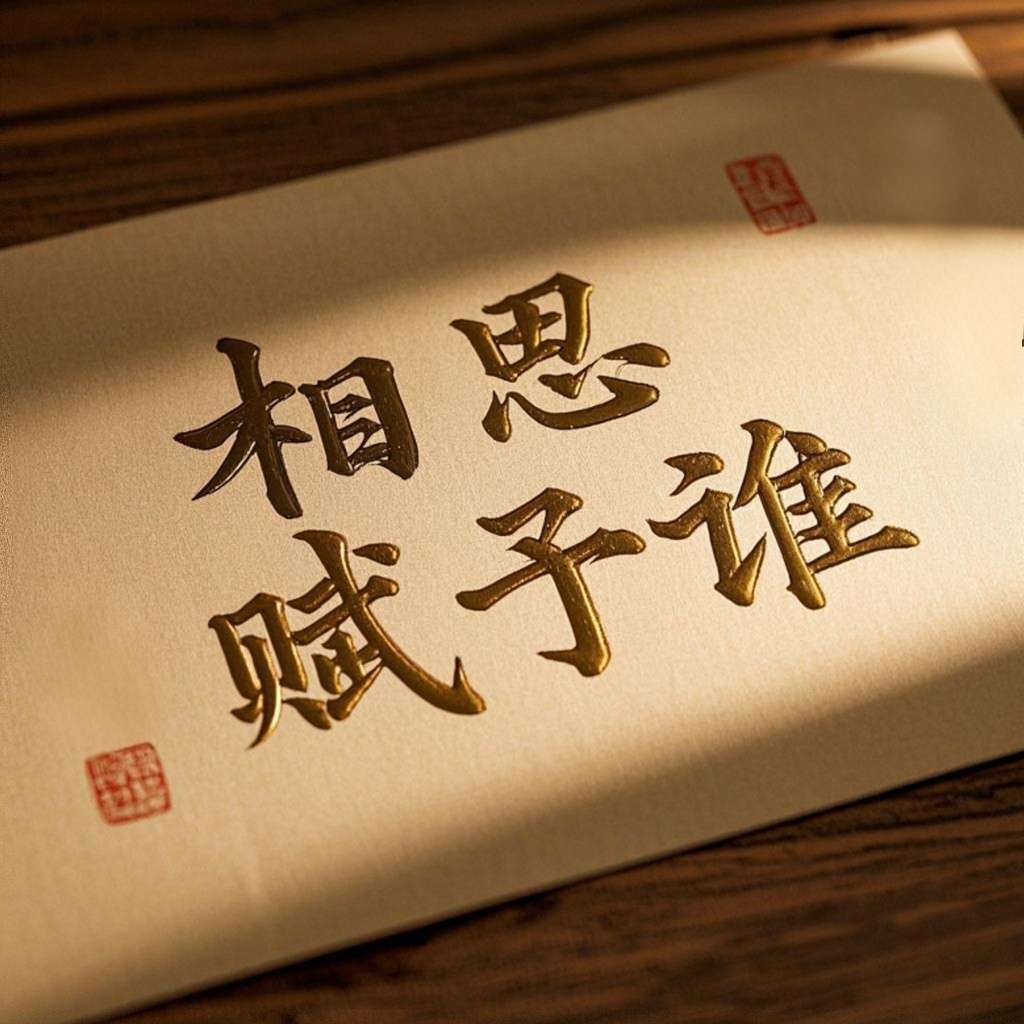 相思
赋子谁